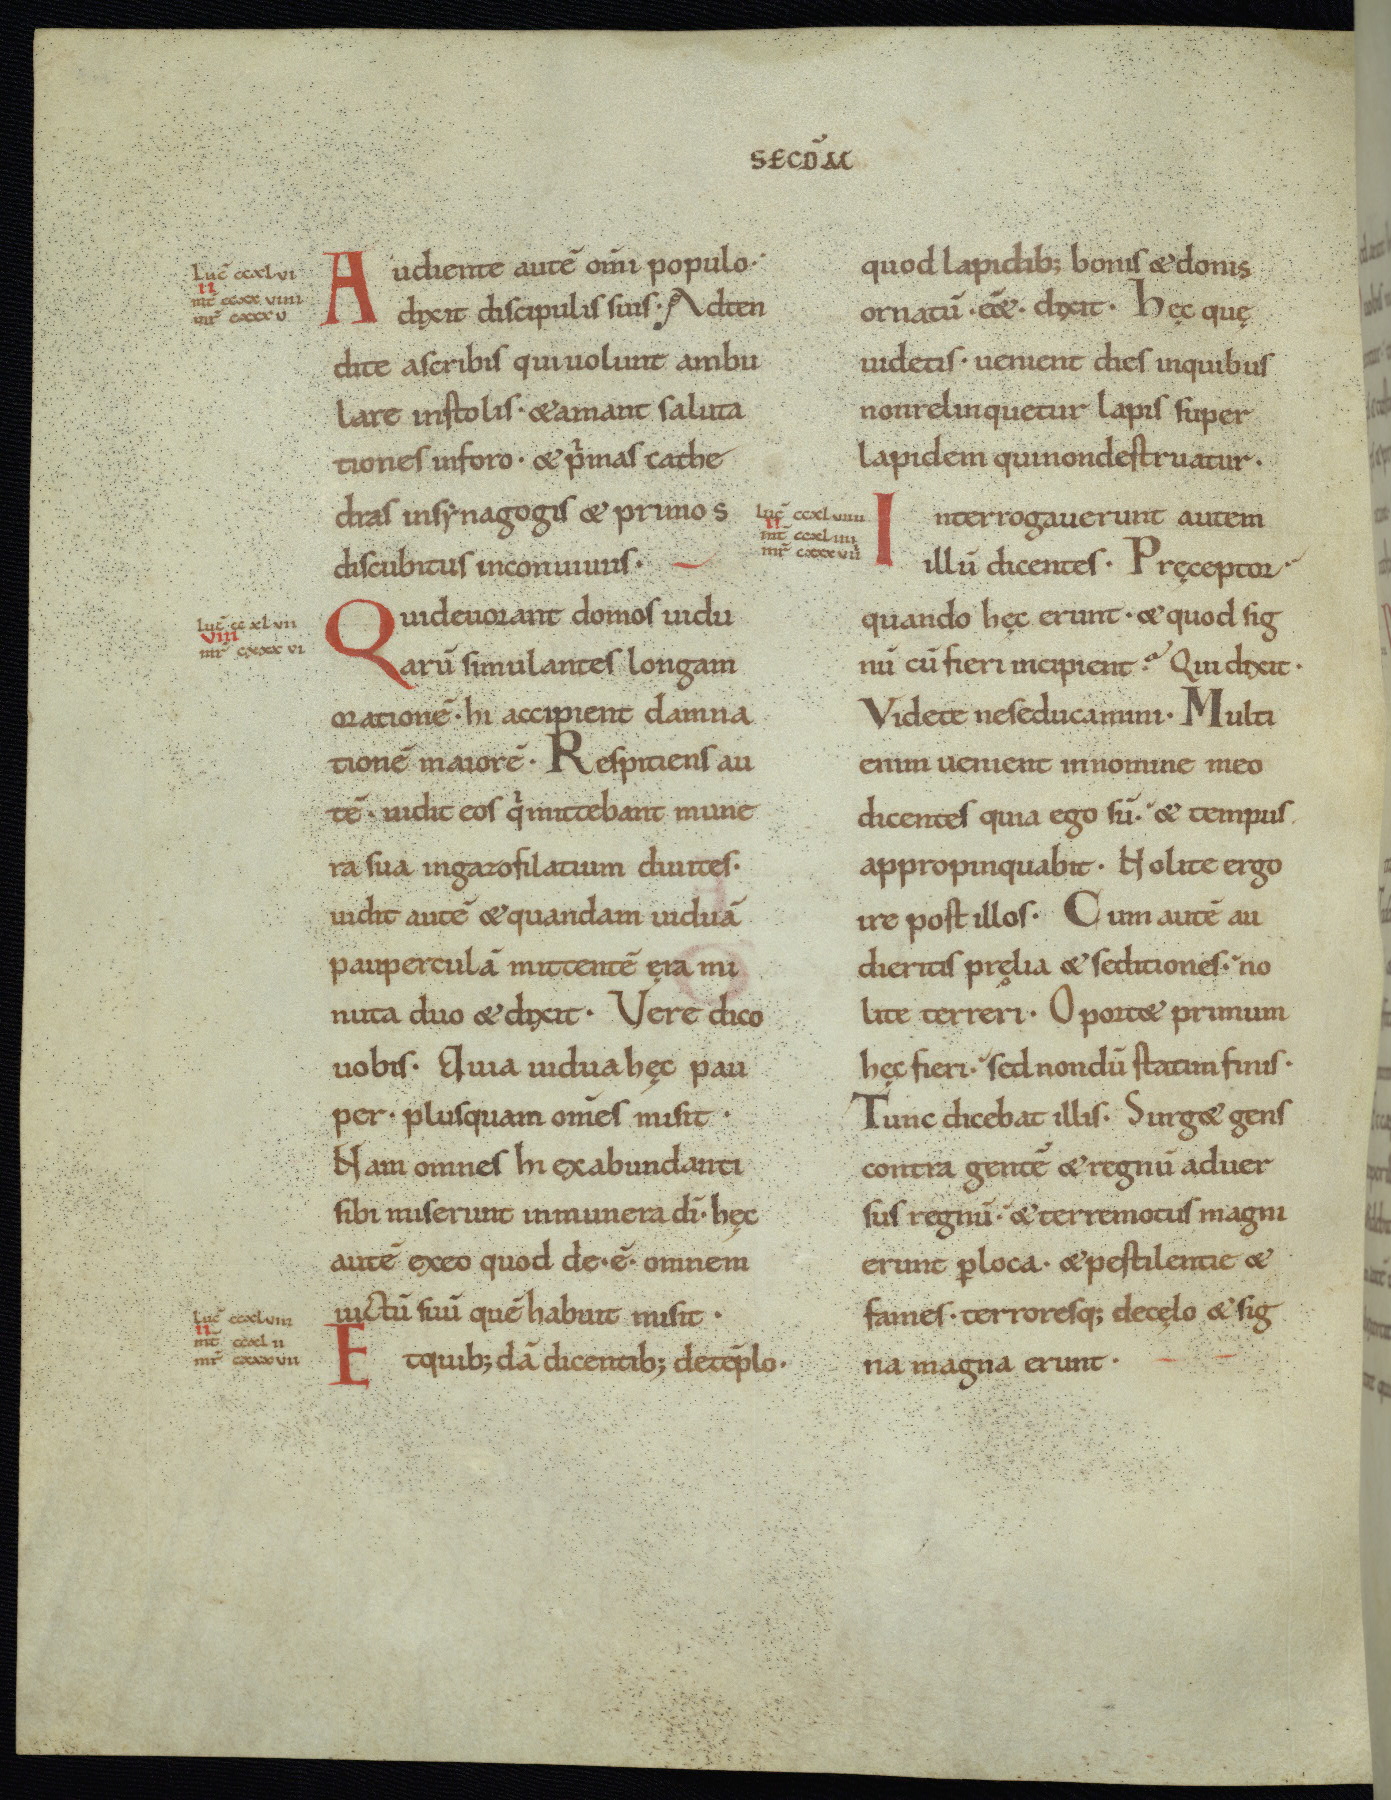 SECDM̄
Luc̄ ccxlvi
II
mt̄ ccxxviiii
mr̄ cxxxv
Audiente autē om̄i populo·
dixit discipulis suis· Adten
dite ascribis quiuolunt ambu
lare instolis· &amant saluta
tiones inforo· & pͥmas cathe
dras insynagogis & primos
discubitus inconuiuiis·
Luc̄ ccxlvii
VIII
mr̄ cxxxvi
Quideuorant domos uidu
arū simulantes longam
orationē· hi accipient damna
tionē maiorē· Respitiens au
tē· uidit eos qͥ mittebant mune
ra sua ingazofilatium diuites·
uidit autē &quandam uiduā
pauperculā mittentē ęra mi
nuta duo & dixit· Vere dico
uobis· Quia uidua hęc pau
per· plusquam om̄es misit·
Nam omnes hi exabundanti
sibi miserunt inmunera dī· hęc
autē exeo quod de·ē· omnem
uictū suū quē habuit misit·
Luc̄ ccxlviii
II
mt̄ ccxlii
mr̄ cxxxvii
Etquib; dā dicentib; detēplo·
quod lapidib; bonis &donis
ornatū· eē&· dixit· Hęc quę
uidetis· uenient dies inquibus
nonrelinquetur lapis super
lapidem quinondestruatur·
Luc̄ ccxlviiii
II
mt̄ ccxliii
mr̄ cxxxvii
Interrogauerunt autem
illū dicentes· Pręceptor·
quando hęc erunt· & quod sig
nū cū fieri incipient? Qui dixit·
Videte neseducamini· Multi
enim uenient innomine meo
dicentes quia ego sū· & tempus
appropinquabit· Nolite ergo
ire post illos· Cum autē au
dieritis pręlia & seditiones· no
lite terreri· Oport& primum
hęc fieri· sed nondū statim finis·
Tunc dicebat illis· Surg& gens
contra gentē & regnū aduer
sus regnū· &terremotus magni
erunt ꝑloca· &pestilentie &
fames· terroresq; decęlo & sig
na magna erunt·